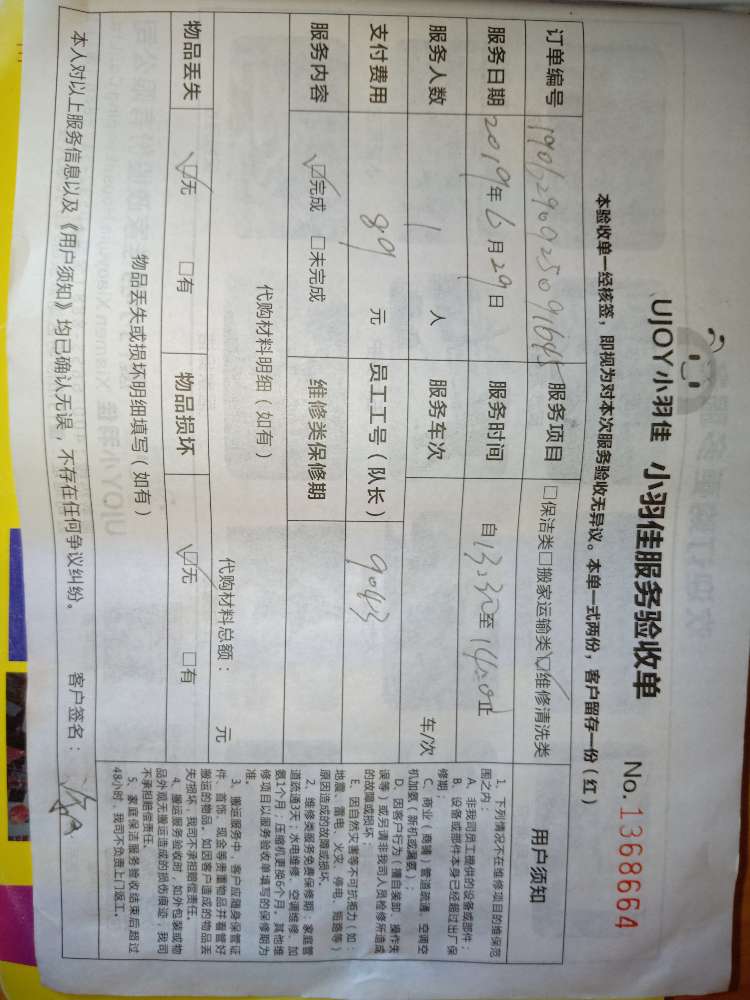 UJOY小羽佳 小羽佳服务验收单 No. 1368664
本验收单一经核签，即视为对本次服务验收无异议。本单一式两份，客户留存一份（红）
订单编号 190629092509164 服务项目 □保洁类□搬家运输类☑维修清洗类 用户须知
服务日期 2019年6月29日 服务时间 自13:30至14:00止
服务人数 1 人 服务车次 车/次
支付费用 89 元 员工工号（队长） 9043
服务内容 ☑完成 □未完成 维修类保修期
代购材料明细（如有） 代购材料总额： 元
物品丢失 ☑无 □有 物品损坏 ☑无 □有
物品丢失或损坏明细填写（如有）
1、下列情况不在维修项目的维保范
围之内：
A、非我司员工提供的设备或部件；
B、设备或部件本身已经超过出厂保
修期；
C、商业（商铺）管道疏通、空调空
机加氨（新机或漏氨）；
D、因客户行为（擅自装卸、操作失
误等）或另请非我司人员检修所造成
的故障或损坏；
E、因自然灾害等不可抗拒力（如：
地震、雷电、火灾、停电、短路等）
原因造成的故障或损坏
2、维修类服务免费保修期：家庭管
道疏通3天；水电维修、空调维修、加
氨1个月；压缩机更换6个月。其他维
修项目以服务验收单填写的保修期为
准。
3、搬运服务中，客户应随身保管证
件、首饰、现金等贵重物品并看管好
搬运的物品。如因客户造成的物品丢
失/损坏，我司不承担赔偿责任。
4、搬运服务验收时，如外包装或物
品外观无搬运造成的损伤痕迹，我司
不承担赔偿责任。
5、家庭保洁服务验收结束后超过
48小时，我司不负责上门返工。
本人对以上服务信息以及《用户须知》均已确认无误，不存在任何争议纠纷。 客户签名：